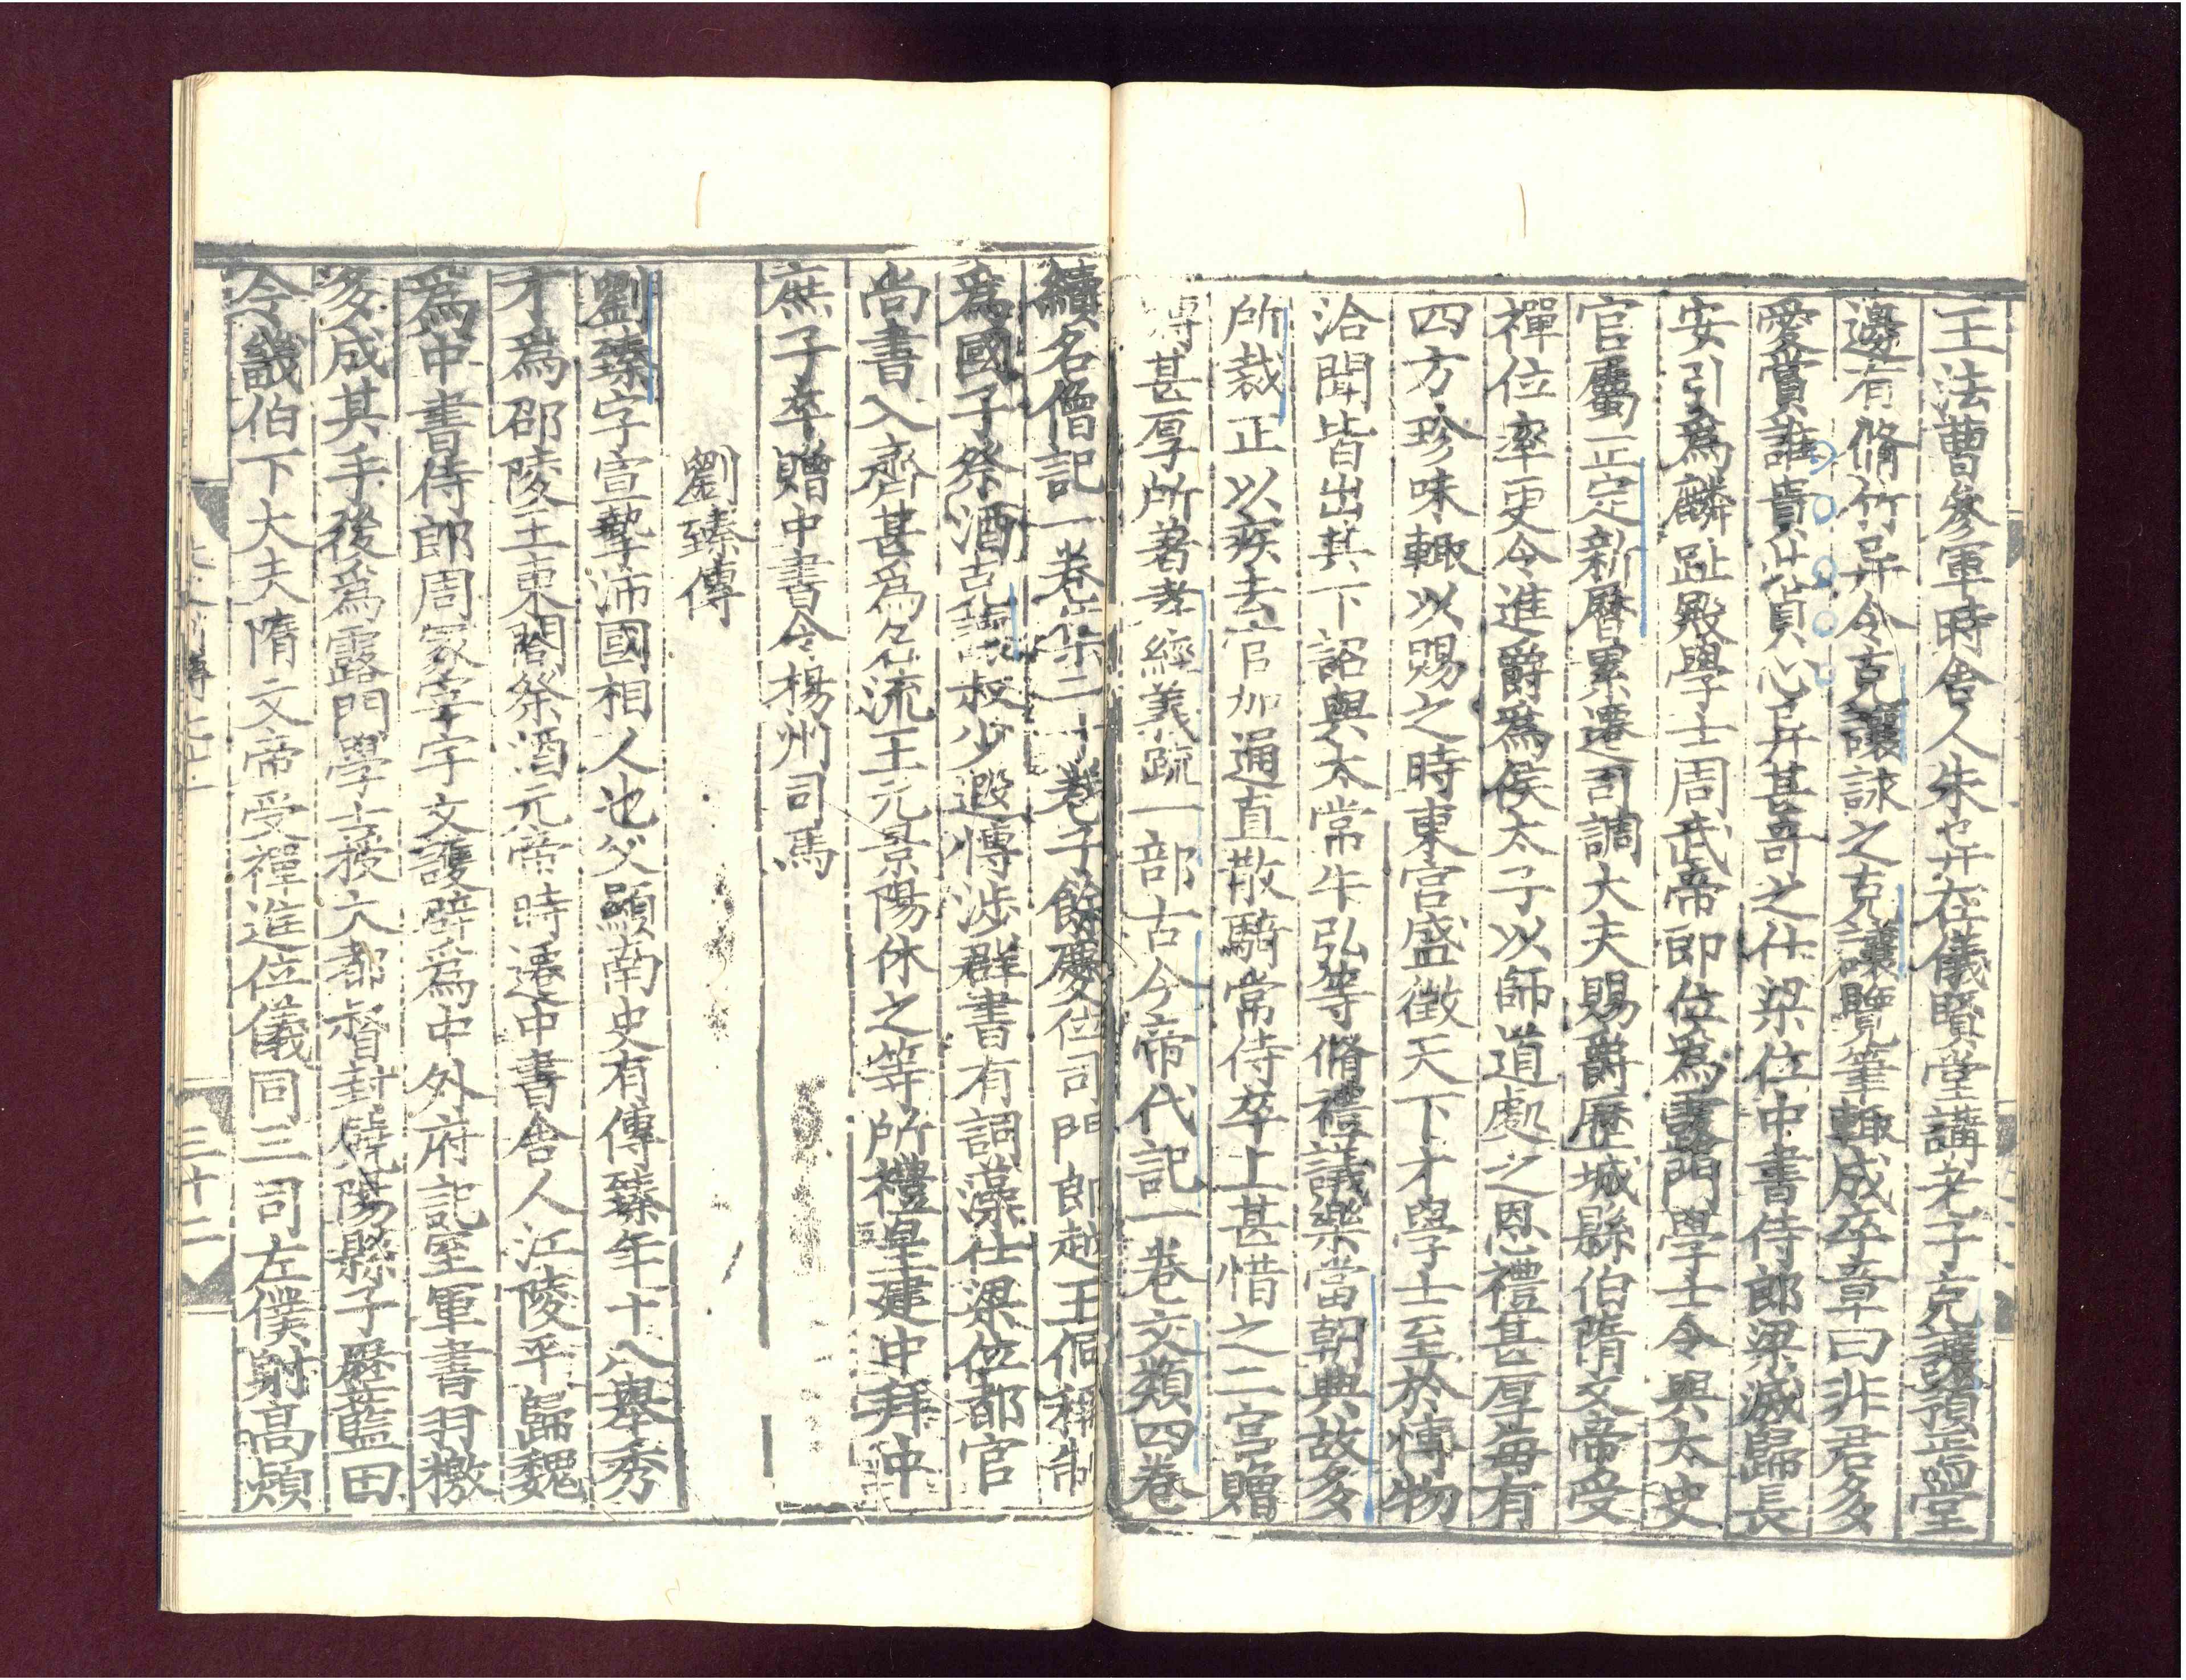 王法曹參軍時舍人朱异在儀賢堂講老子克讓預焉堂
邊有脩竹异令克讓詠之克讓覽筆輙成卒章曰非君多
愛賞誰貴此貞心异甚奇之仕梁位中書侍郎梁滅歸長
安引爲麟趾殿學士周武帝即位爲露門學士令與太史
官屬正定新曆累遷司調大夫賜爵歷城縣伯隋文帝受
禪位率更令進爵爲侯太子以師道處之恩禮甚厚每有
四方珍味輙以賜之時東宮盛徵天下才學士至於愽物
洽聞皆出其下詔與太常牛弘等脩禮議樂當朝典故多
所裁正以疾去官加通直散騎常侍卒上甚惜之二宮贈
賻甚厚所著孝經義疏一部古今帝代記一卷文類四卷
續名僧記一卷集二十卷子餘慶位司門郎越王侗稱制
爲國子祭酒克讓叔少遐愽涉群書有詞藻仕梁位都官
尚書入齊甚爲名流王元景陽休之等所禮皇建中拜中
庶子卒贈中書令楊州司馬
劉臻傳
劉臻字宣摯沛國相人也父顯南史有傳臻年十八舉秀
才爲邵陵王東閤祭酒元帝時遷中書舍人江陵平歸魏
爲中書侍郎周冢宰宇文護辟爲中外府記室軍書羽檄
多成其手後爲露門學士授大都督封饒陽縣子歷藍田
令畿伯下大夫隋文帝受禪進位儀同三司左僕射高熲
三十二